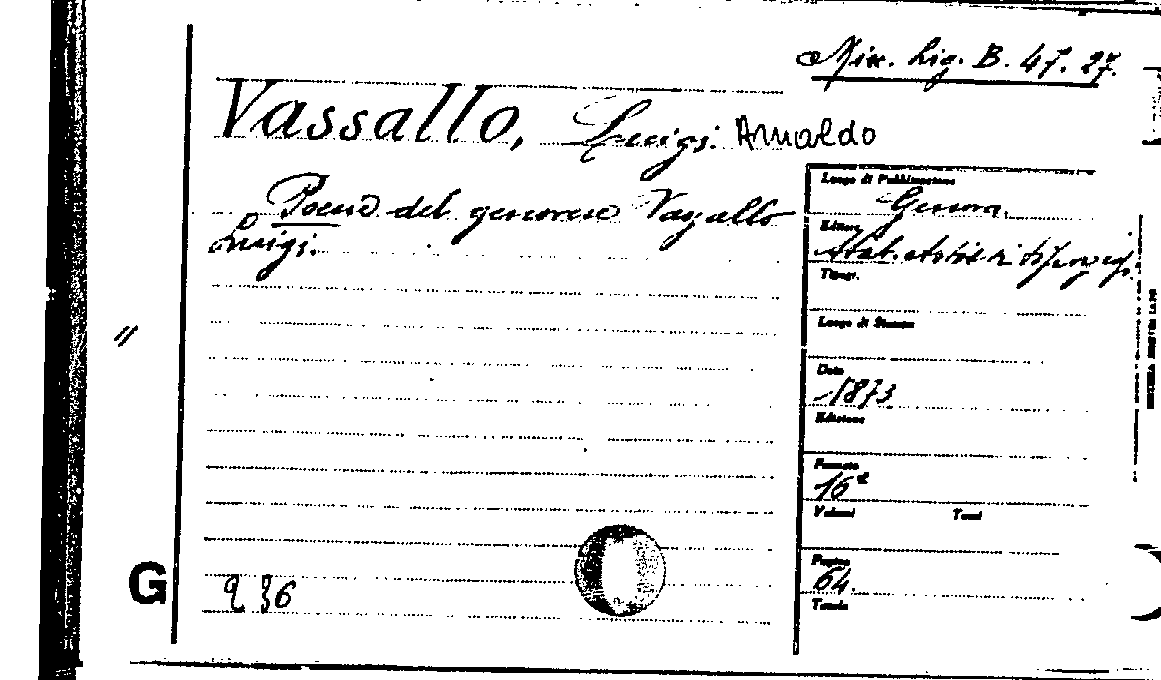 Mix. Lig. B. 47. 27.
Vassallo, Luigi. Arnaldo
Poesie del genovese Vassallo
Luigi.
Luogo di Pubblicazione
Genova.
Editore
Stab.
Tipogr.
Luogo di Stampa
Data
1873
Edizione
Formato
16º
Volumi Tomi
Pagine
64.
Tavole
G
236